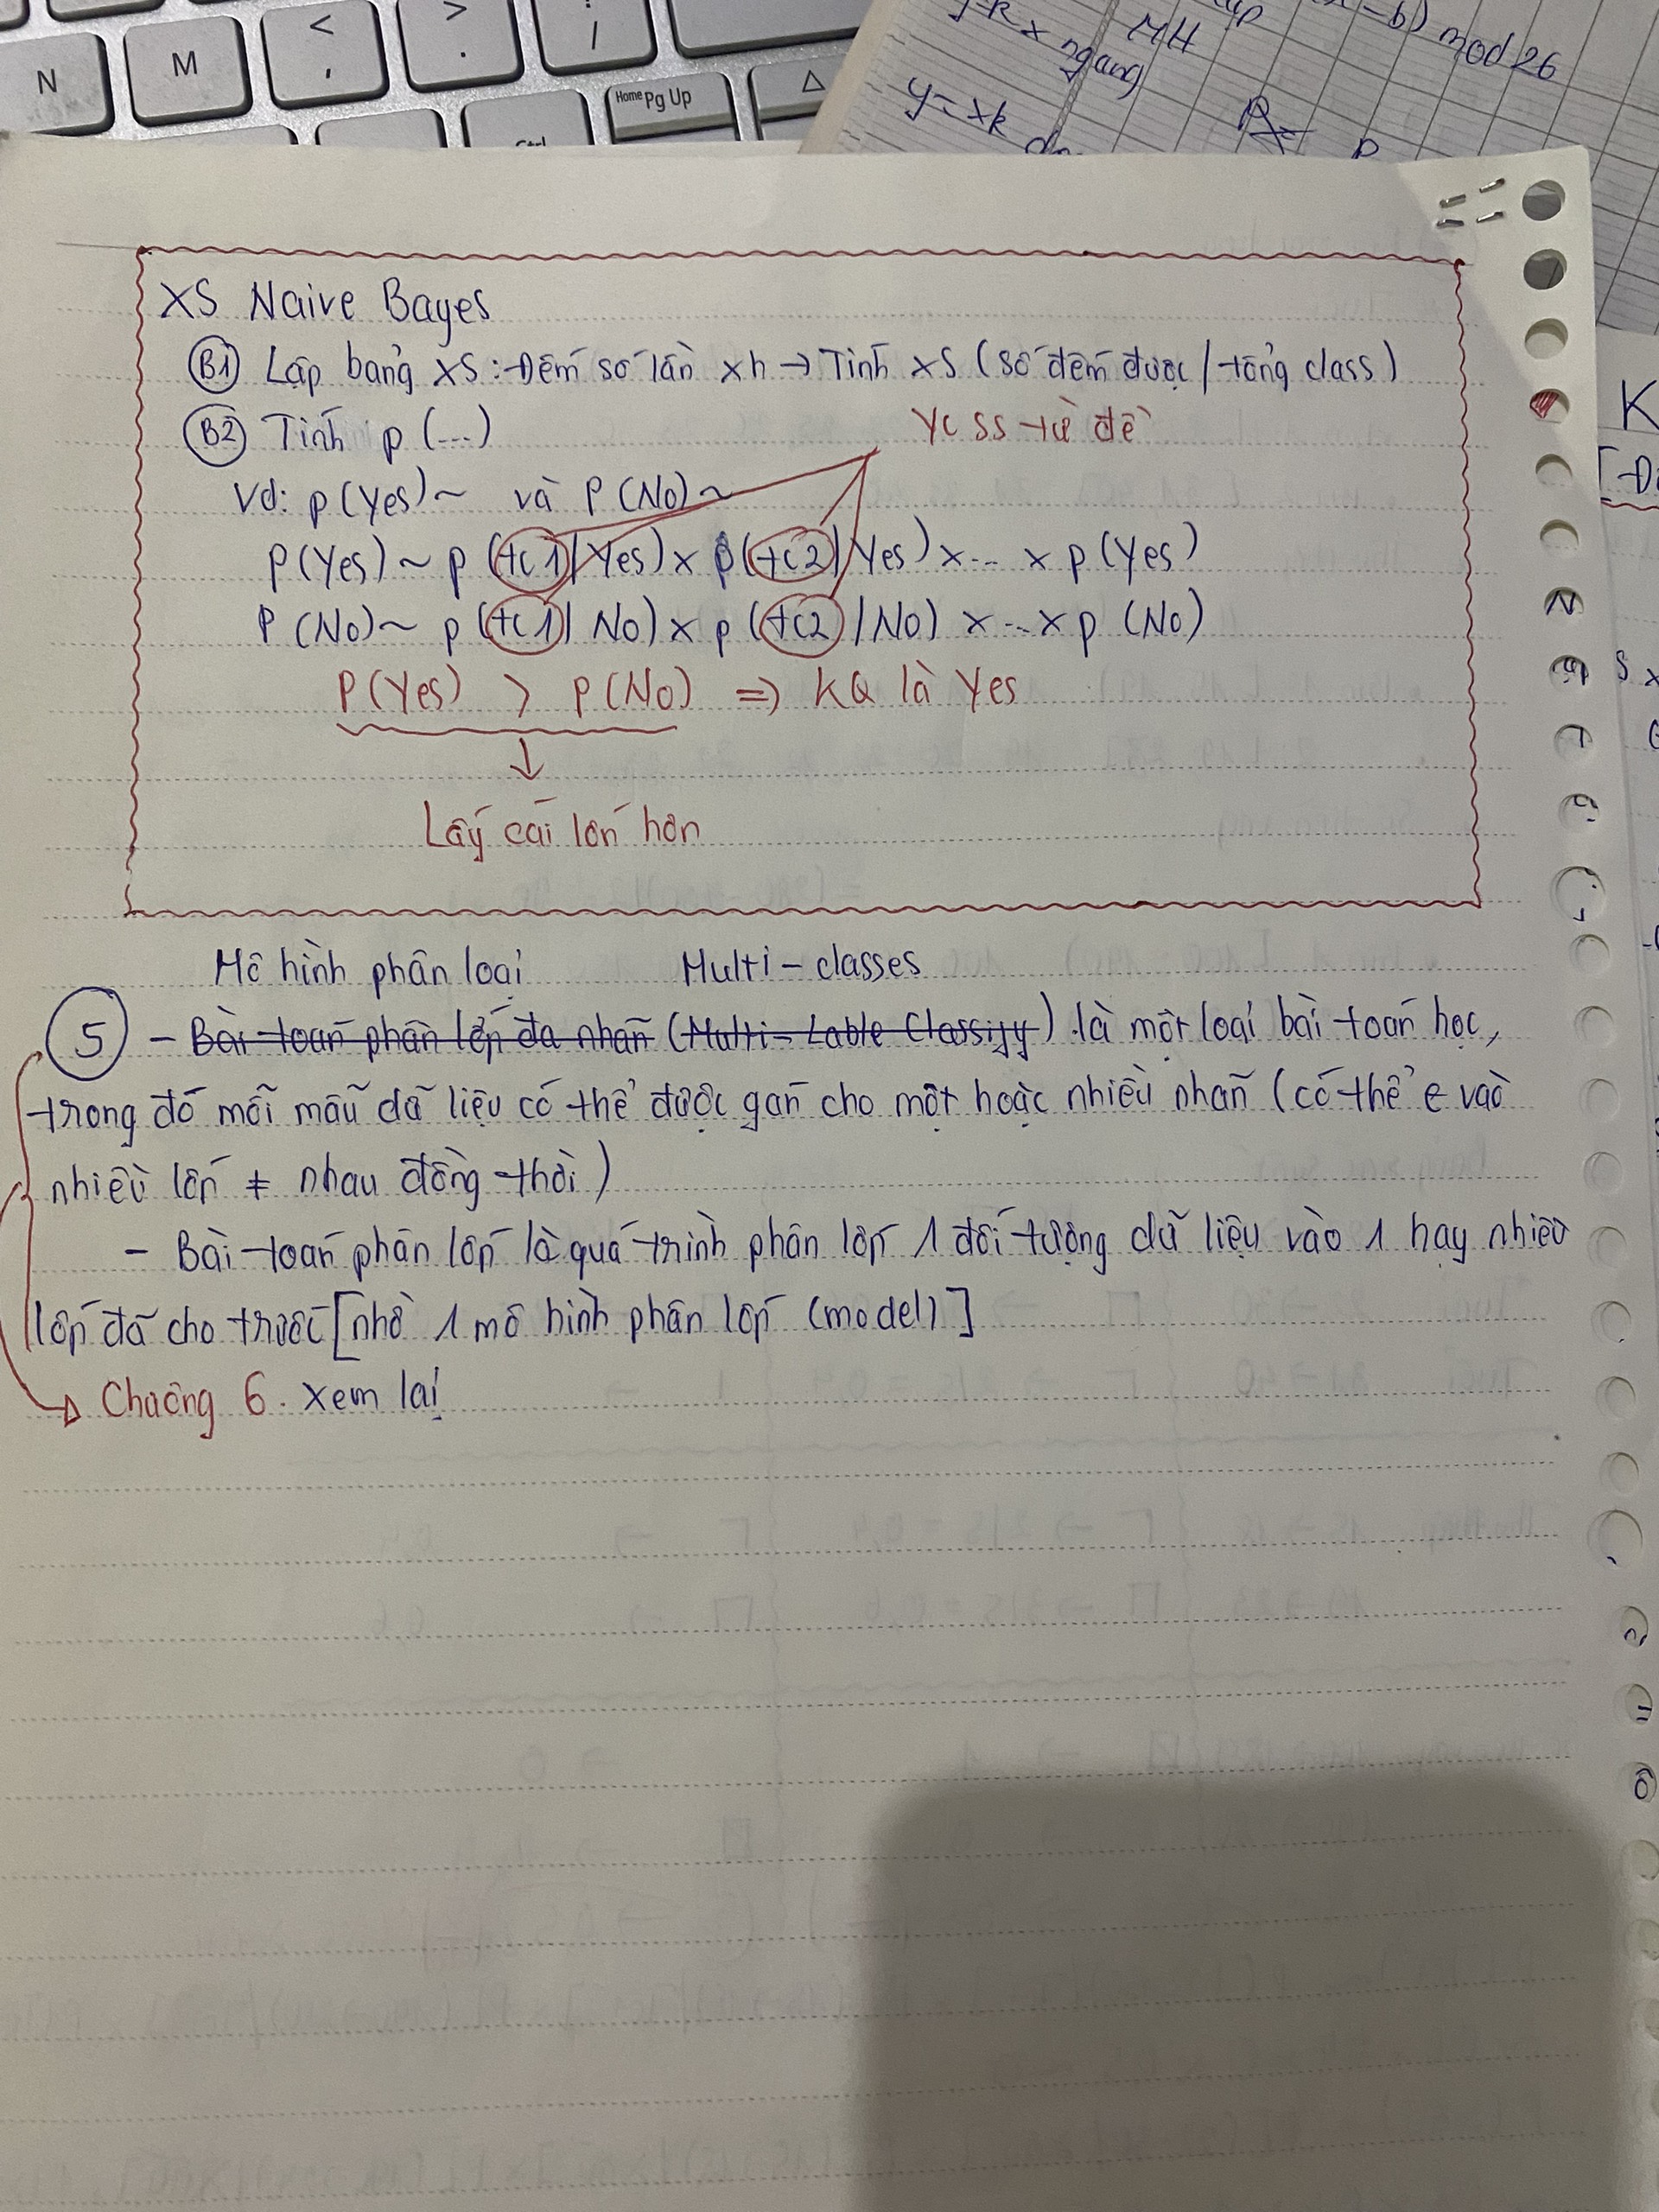 N
M
<
,
>
.
/
Home Pg Up
Ctrl
x ngang
MH
mod 26
y = xk
XS Naive Bayes
B1 Lập bảng XS: Đếm số lần xh → Tính XS (số đếm được / tổng class)
B2 Tính p (...)
YC SS từ đề
Vd: p(Yes) ~ và P(No) ~
P(Yes) ~ p (tc1 | Yes) x p (tc2 | Yes) x ... x p (Yes)
P (No) ~ p (tc1 | No) x p (tc2 | No) x ... x p (No)
P(Yes) > p(No) => KQ là Yes
↓
Lấy cái lớn hơn
Mô hình phân loại Multi - classes
5 - Bài toán phân lớp đa nhãn (Multi - Lable Classify) là một loại bài toán học,
trong đó mỗi mẫu dữ liệu có thể được gán cho một hoặc nhiều nhãn (có thể ∈ vào
nhiều lớp ≠ nhau đồng thời)
- Bài toán phân lớp là quá trình phân lớp 1 đối tượng dữ liệu vào 1 hay nhiều
lớp đã cho trước [nhờ 1 mô hình phân lớp (model)]
→ Chương 6. Xem lại